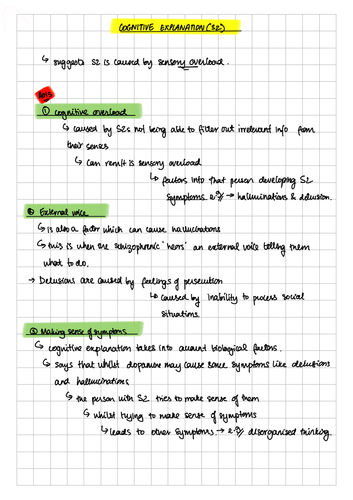 COGNITIVE EXPLANATION (SZ)
↳ suggests SZ is caused by sensory overload.
AO1S
① cognitive overload
↳ caused by SZs not being able to filter out irrelevant info from
their senses
↳ can result is sensory overload
↳ factors into that person developing SZ
symptoms e.g → hallucinations & delusion.
② External voice
↳ is also a factor which can cause hallucinations
↳ this is when the schizophrenic 'hears' an external voice telling them
what to do.
→ Delusions are caused by feelings of persecution
↳ caused by inability to process social
situations.
③ Making sense of symptoms
↳ cognitive explanation takes into account biological factors.
↳ says that whilst dopamine may cause some symptoms like delusions
and hallucinations
↳ the person with SZ tries to make sense of them
↳ whilst trying to make sense of symptoms
↳ leads to other symptoms → e.g disorganised thinking.